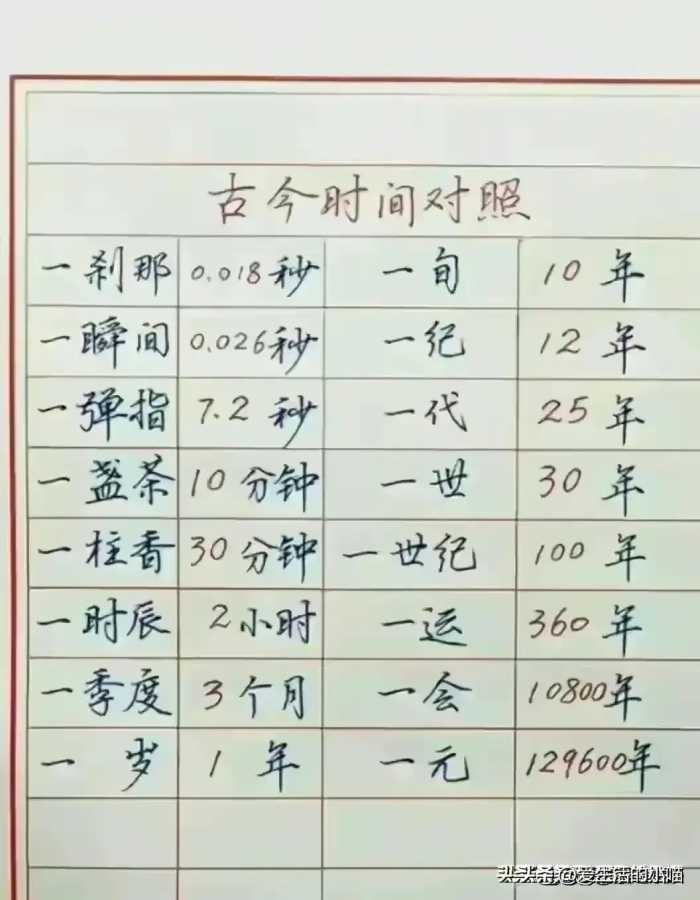 古今时间对照
一刹那 0.018秒 一旬 10年
一瞬间 0.026秒 一纪 12年
一弹指 7.2秒 一代 25年
一盏茶 10分钟 一世 30年
一柱香 30分钟 一世纪 100年
一时辰 2小时 一运 360年
一季度 3个月 一会 10800年
一岁 1年 一元 129600年
头条 @爱生活的小喵